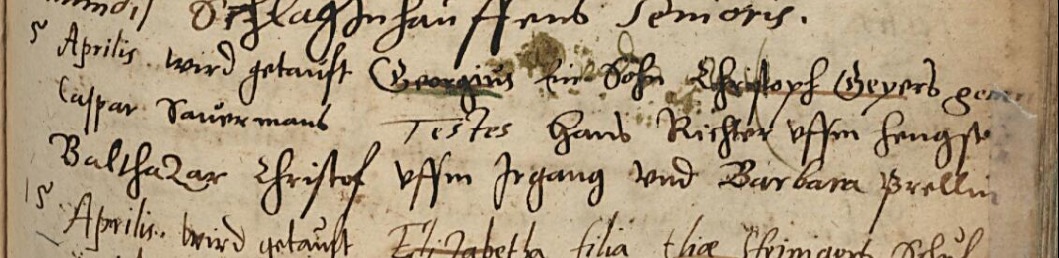 Schlaginhauffens Senioris.
5 Aprilis wird getaufft Georgius ein Sohn Christoph Geyers
Caspar Sauermans Testes Hans Richter uffm hengst
Balthazar Christof uffm Irgang vnd Barbara Prellin
15 Aprilis. wird getaufft Elizabetha filia